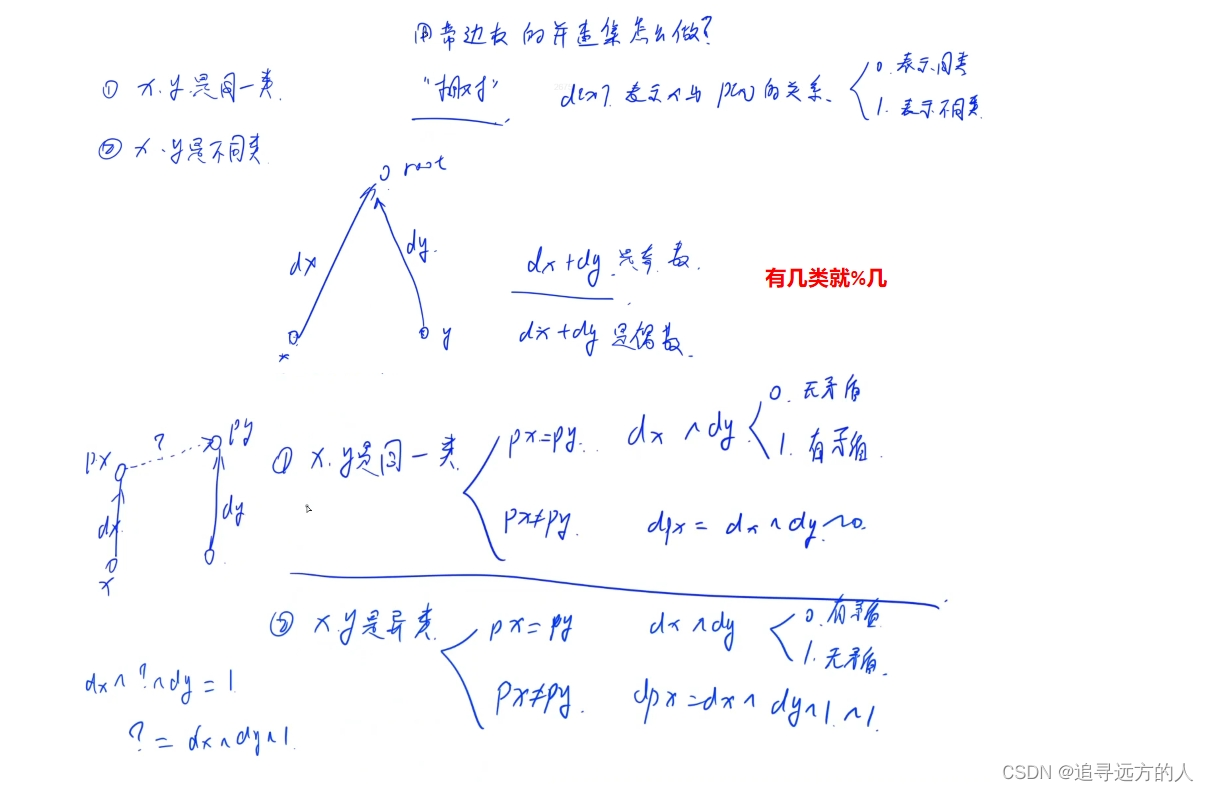 用带边权的并查集怎么做?
① x.y是同一类.
"相对"
d[x]. 表示x与p[x]的关系.
0. 表示同类
1. 表示不同类.
② x.y是不同类.
root
dx
dy.
x
y
dx+dy 是奇数.
有几类就%几
dx+dy 是偶数.
px
?
py
dx
dy
x
① x.y是同一类.
px=py.
dx ^ dy
0. 无矛盾
1. 有矛盾.
px≠py.
dpx = dx ^ dy ^ 0.
② x.y是异类.
px = py
dx ^ dy
0. 有矛盾
1. 无矛盾.
px≠py.
dpx = dx ^ dy ^ 1.
dx ^ ? ^ dy = 1
? = dx ^ dy ^ 1.
CSDN @追寻远方的人